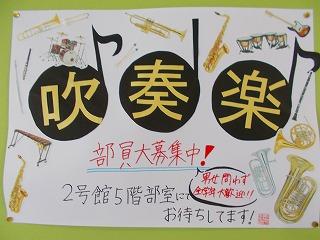 吹奏楽
部員大募集中!
男女問わず
全学年大歓迎!!
2号館5階部室にて
お待ちしてます!